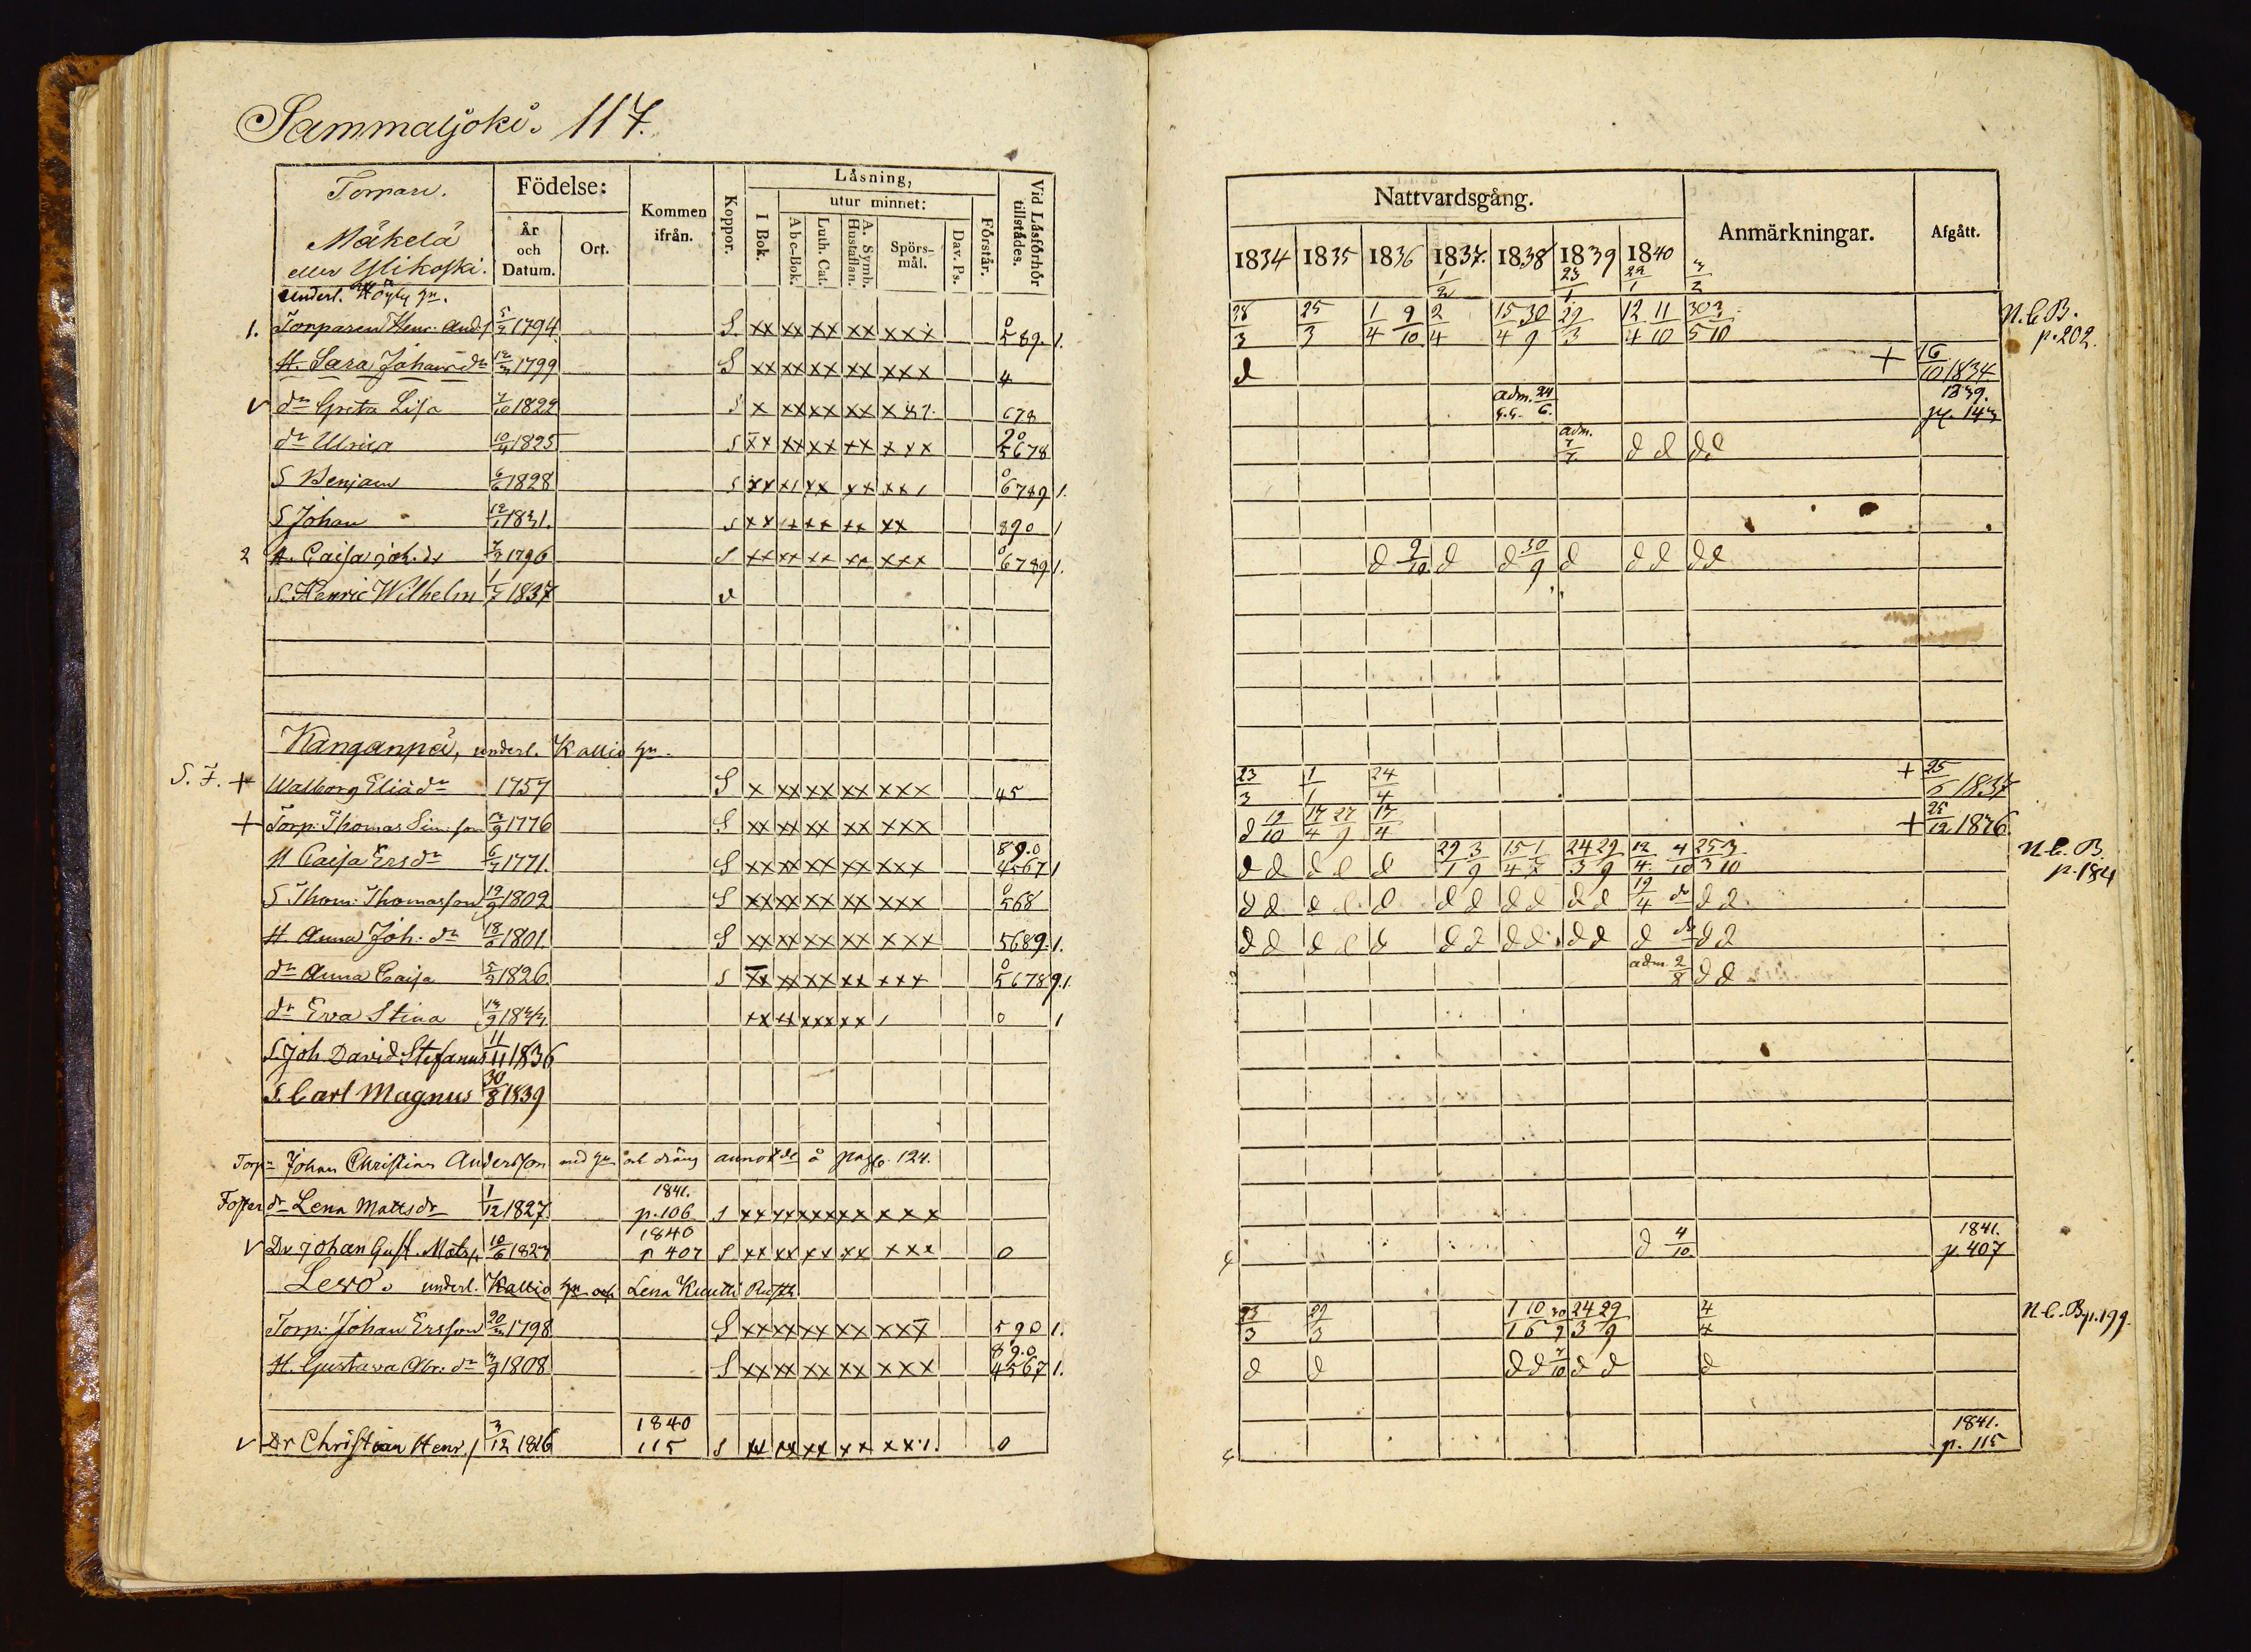 Sammaljoki. 117.
Torpare.
Mäkelä
eller Ylikoski.
Födelse:
År
och
Datum.
Ort.
Kommen
ifrån.
Koppor.
Läsning,
I Bok.
utur minnet:
Abc-Bok.
Luth. Cat.
A. Symb.
Hustaflan.
Spörs-
mål.
Dav. Ps.
Förstår.
Vid Läsförhör
tillstådes.
underl.
1. Torparen Henr. And.s 5/2 1794 S. xx xx xx xx xxx 0 589. 1.
H. Sara Johansdr 12/3 1799 S xx xx xx xx xxx 4
dr Greta Lisa 1822 S x xx xx xx x 678
dr Ulrica 1825 S xx xx xx xx xxx 5678
S Benjam 6/6 1828 S xx xx xx 0 6789 1.
S Johan 1831. S xx xx xx xx 890 1
2 H. Caisa Joh. dr 1796 S xx xx xx xx xxx 0 6789 1.
S. Henric Wilhelm 1/7 1837 v
Kanganpä, underl. Kallio
S. F. + Walborg Eliädr 1757 S x xx xx xx xxx 45
+ Torp. Thomas Sim. son 1776 S xx xx xx xx xxx
H Caisa Ersdr 1771. S xx xx xx xx xxx 89.0 4567 1
S Thom: Thomasson 19/9 1802 S xx xx xx xx xxx 0 568
H. Anna Joh. dr 1801. S xx xx xx xx xxx 5689. 1.
dr Anna Caisa 1826. S xx xx xx xx xxx 0 56789 1.
dr Eva Stina xx xx xx xx 0 1
S. Joh. David Stefanus 11/11 1836
S. Carl Magnus 30/8 1839
Torpn Johan Christian Andersson med och dräng annot de å pag. 124.
1841.
Foster dr Lena Mattsdr 1/12 1827. p. 106 S xx xx xx xx xxx
1840
V Dr Johan Gust. Mats.s 10/6 1823 p 407 S xx xx xx xx xxx 0
Lewo. underl. Kallio och Lena
Torp. Johan Ersson 20/3 1798 S xx xx xx xx xxx 590 1.
H. Gustava Abr. dr 1808 S xx xx xx xx xxx 89.0 4567 1.
1840
V Dr Christian Henr.s 3/12 1816 115 S xx xx xx xx 0
Nattvardsgång.
1834 1835 1836 1837. 1838 1839 1840
Anmärkningar.
Afgått.
28/3 25/3 1/4 9/10 2/4 15/4 30/9 29/3 12/4 11/10 30/5 3/10 N.C.B.
p. 202.
d + 16/10 1834
adm. 24/6. 1839.
p. 143
adm. d d d d
d 9/10 d d 30/9 d d d d d
23/3 1/1 24/4 + 25/6 1837
d 19/10 17/4 27/9 17/4 + 25/12 1836
d d d d d 29/1 3/9 15/4 24/3 29/9 12/4 4/10 25/3 3/10 N.C.B.
p. 184
d d d d d d d d d d d 19/4 do d d
d d d d d d d d d d d d do d d
adm. 2/8 d d
d 4/10. 1841.
p. 407
23/3 29/3 24/3 29/9 4/4 N.C.B p. 199.
d d d d d d d
1841.
p. 115